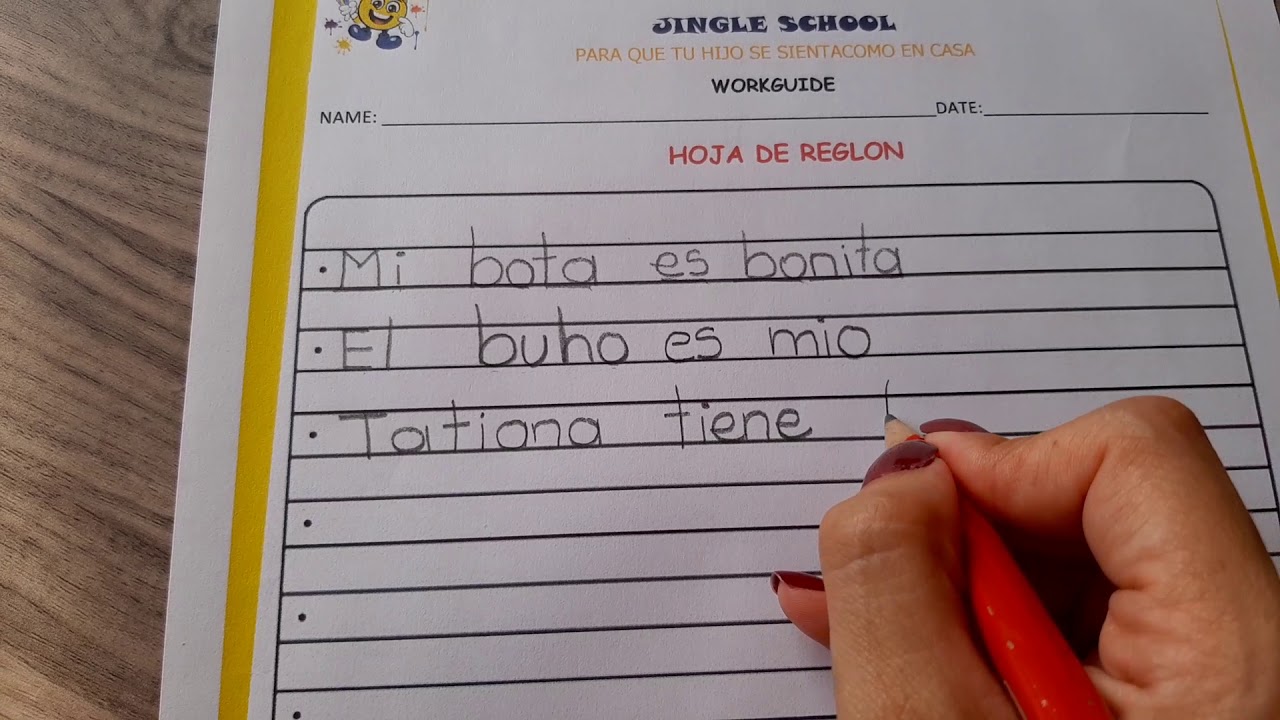 JINGLE SCHOOL
PARA QUE TU HIJO SE SIENTACOMO EN CASA
WORKGUIDE
NAME: DATE:
HOJA DE REGLON
• Mi bota es bonita
• El buho es mio
• Tatiana tiene
•
•
•